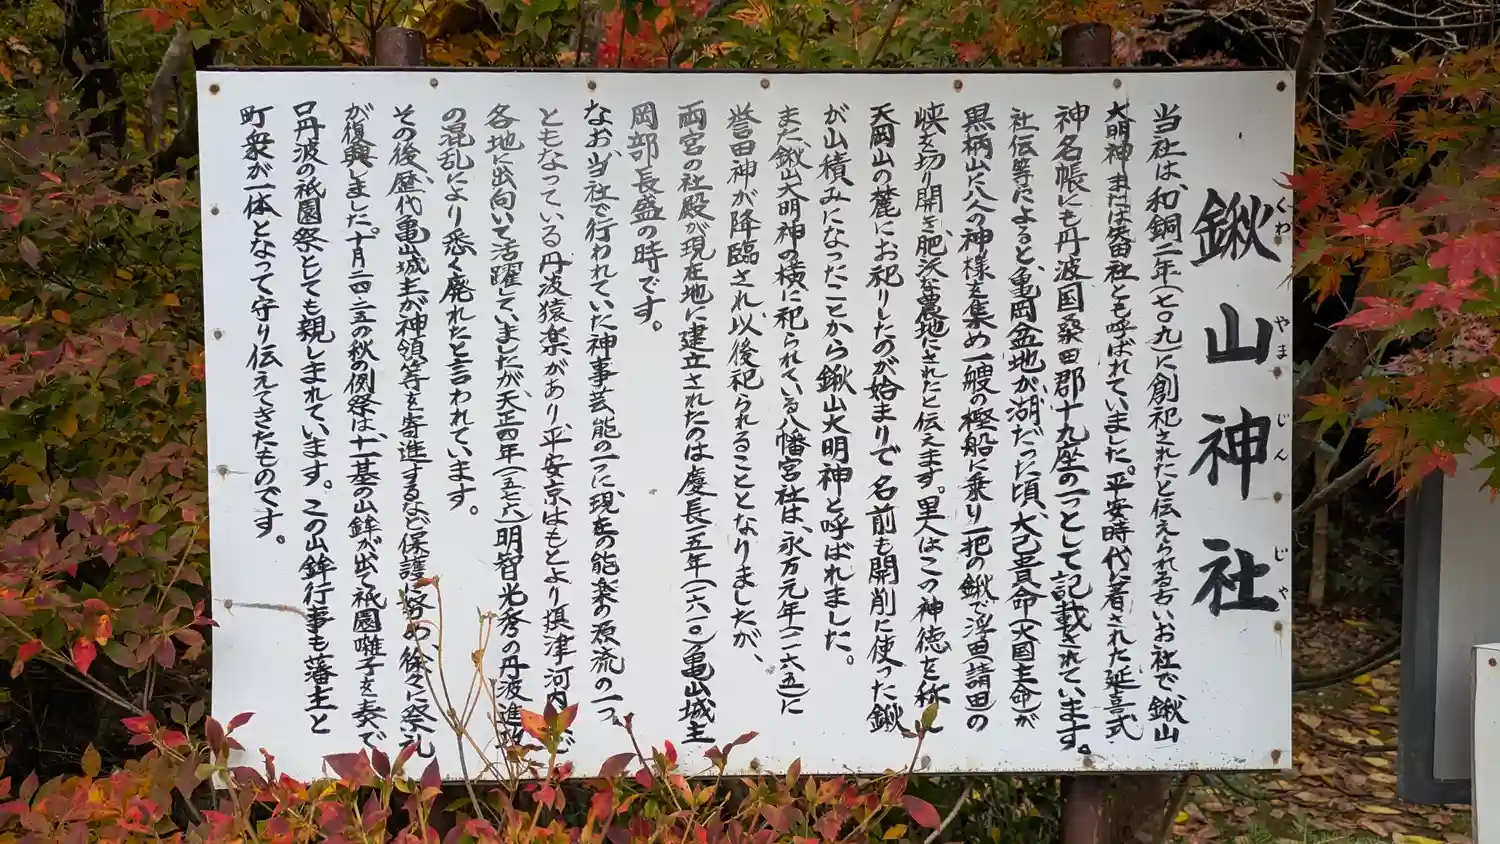 鍬山神社
くわ やま じん じゃ
当社は、和銅二年(七〇九)に創祀されたと伝えられる古いお社で、鍬山
大明神または矢田社とも呼ばれていました。平安時代に著された延喜式
神名帳にも丹波国桑田郡十九座の一つとして記載されています。
社伝等によると、亀岡盆地が湖だった頃、大己貴命(大国主命)が
黒柄山に八人の神様を集め一艘の樫船に乗り一把の鍬で浮田(請田)の
峡を切り開き、肥沃な農地にされたと伝えます。里人はこの神徳を称え
天岡山の麓にお祀りしたのが始まりで名前も開削に使った鍬
が山積みになったことから鍬山大明神と呼ばれました。
また、鍬山大明神の横に祀られている八幡宮社は、永万元年(一一六五)に
誉田神が降臨され以後祀られることとなりましたが、
両宮の社殿が現在地に建立されたのは慶長五年(一六一〇)亀山城主
岡部長盛の時です。
なお、当社で行われていた神事芸能の一つに、現在の能楽の源流の一つ
ともなっている丹波猿楽、があり、平安京はもとより摂津河内など
各地に出向いて活躍していましたが、天正四年(一五七六)明智光秀の丹波進攻
の混乱により悉く廃れたと言われています。
その後、歴代亀山城主が神領等を寄進するなど保護に努め、徐々に祭礼
が復興しました。十月二四・二五の秋の例祭は、十一基の山鉾が出て祇園囃子を奏で
口丹波の祇園祭としても親しまれています。この山鉾行事も藩主と
町衆が一体となって守り伝えてきたものです。